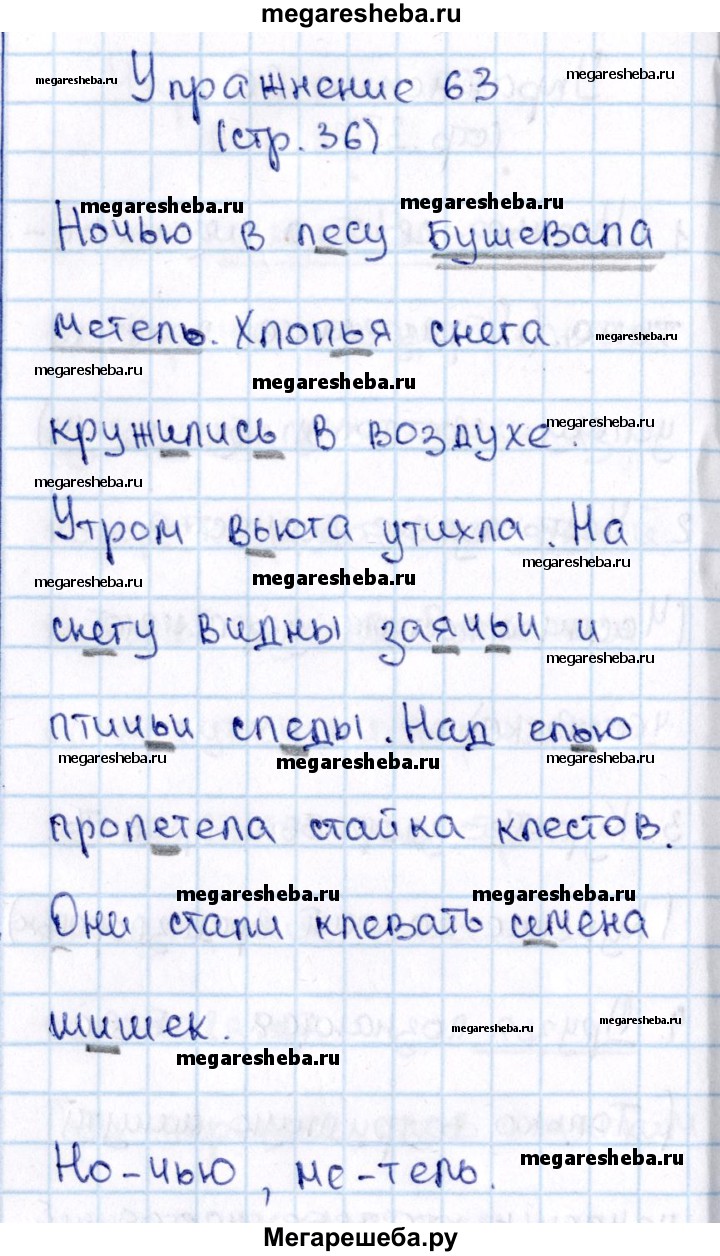 megaresheba.ru
Упражнение 63
megaresheba.ru megaresheba.ru
(стр. 36)
megaresheba.ru megaresheba.ru
Ночью в лесу бушевала
метель. Хлопья снега
megaresheba.ru
megaresheba.ru megaresheba.ru
кружились в воздухе.
megaresheba.ru
megaresheba.ru
Утром вьюга утихла. На
megaresheba.ru megaresheba.ru megaresheba.ru
снегу видны заячьи и
megaresheba.ru
птичьи следы. Над елью
megaresheba.ru megaresheba.ru megaresheba.ru
пролетела стайка клестов.
megaresheba.ru megaresheba.ru
Они стали клевать семена
шишек.
megaresheba.ru megaresheba.ru
megaresheba.ru
Но-чью, ме-тель.
megaresheba.ru
Мегарешеба.ру